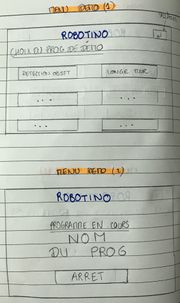 MENU DEMO (2)
ROBOTINO
CHOIX DU PROG DE DEMO
DETECTION OBJET
LONGE MUR
...
...
...
...
MENU DEMO (3)
ROBOTINO
PROGRAMME EN COURS
NOM
DU PROG
ARRET